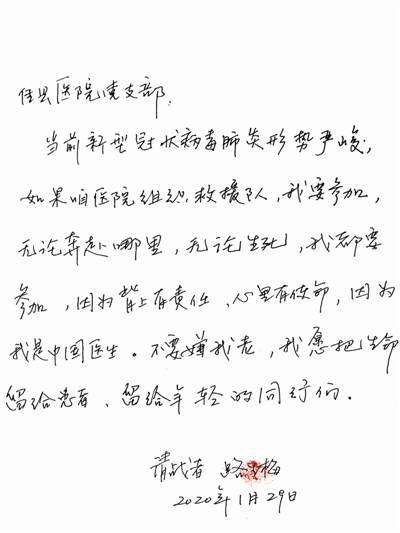 任县医院党支部,
当前新型冠状病毒肺炎形势严峻,
如果咱医院组织救援队,我要参加,
无论奔赴哪里,无论生死,我都要
参加,因为背上有责任、心里有使命,因为
我是中国医生。不要嫌我老,我愿把生命
留给患者、留给年轻的同行们.
请战者 路梅
2020年1月29日